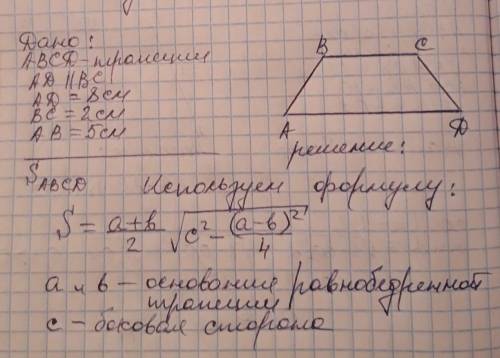 Дано:
ABCD - трапеции
AD || BC
AD = 8см
BC = 2см
AB = 5см
B C
A D
решение:
S ABCD Используем формулу:
S = a+b/2 √c² - (a-b)²/4
a и b - основание равнобедренной
трапеции
c - боковая сторона